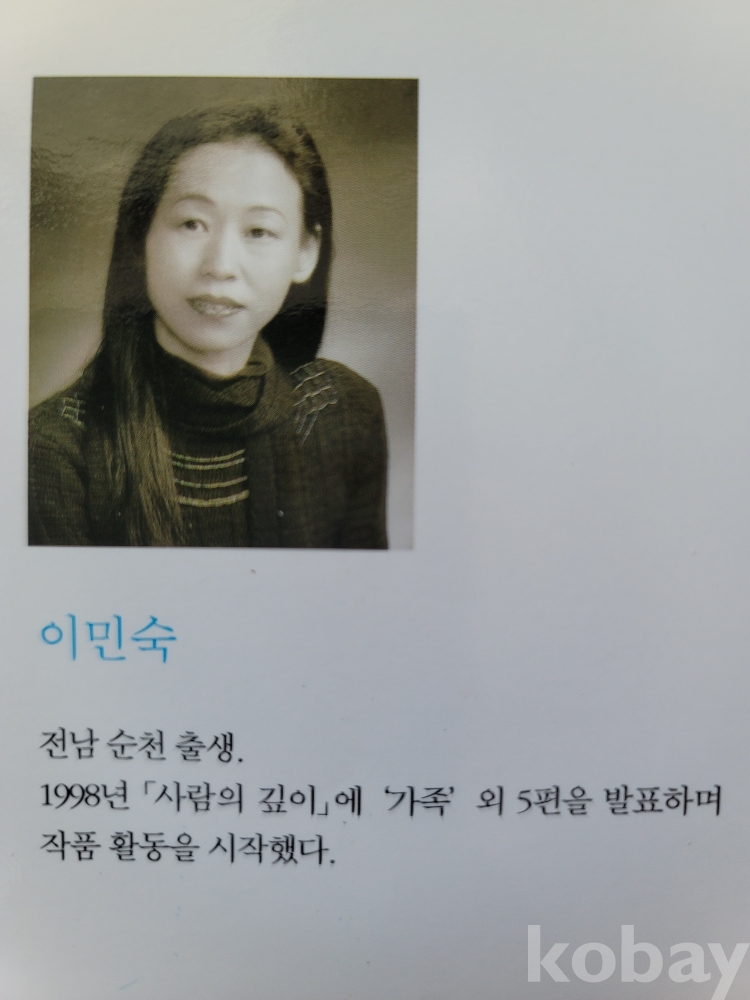 이민숙
전남 순천 출생.
1998년 「사람의 깊이」에 '가족' 외 5편을 발표하며
작품 활동을 시작했다.
kobay